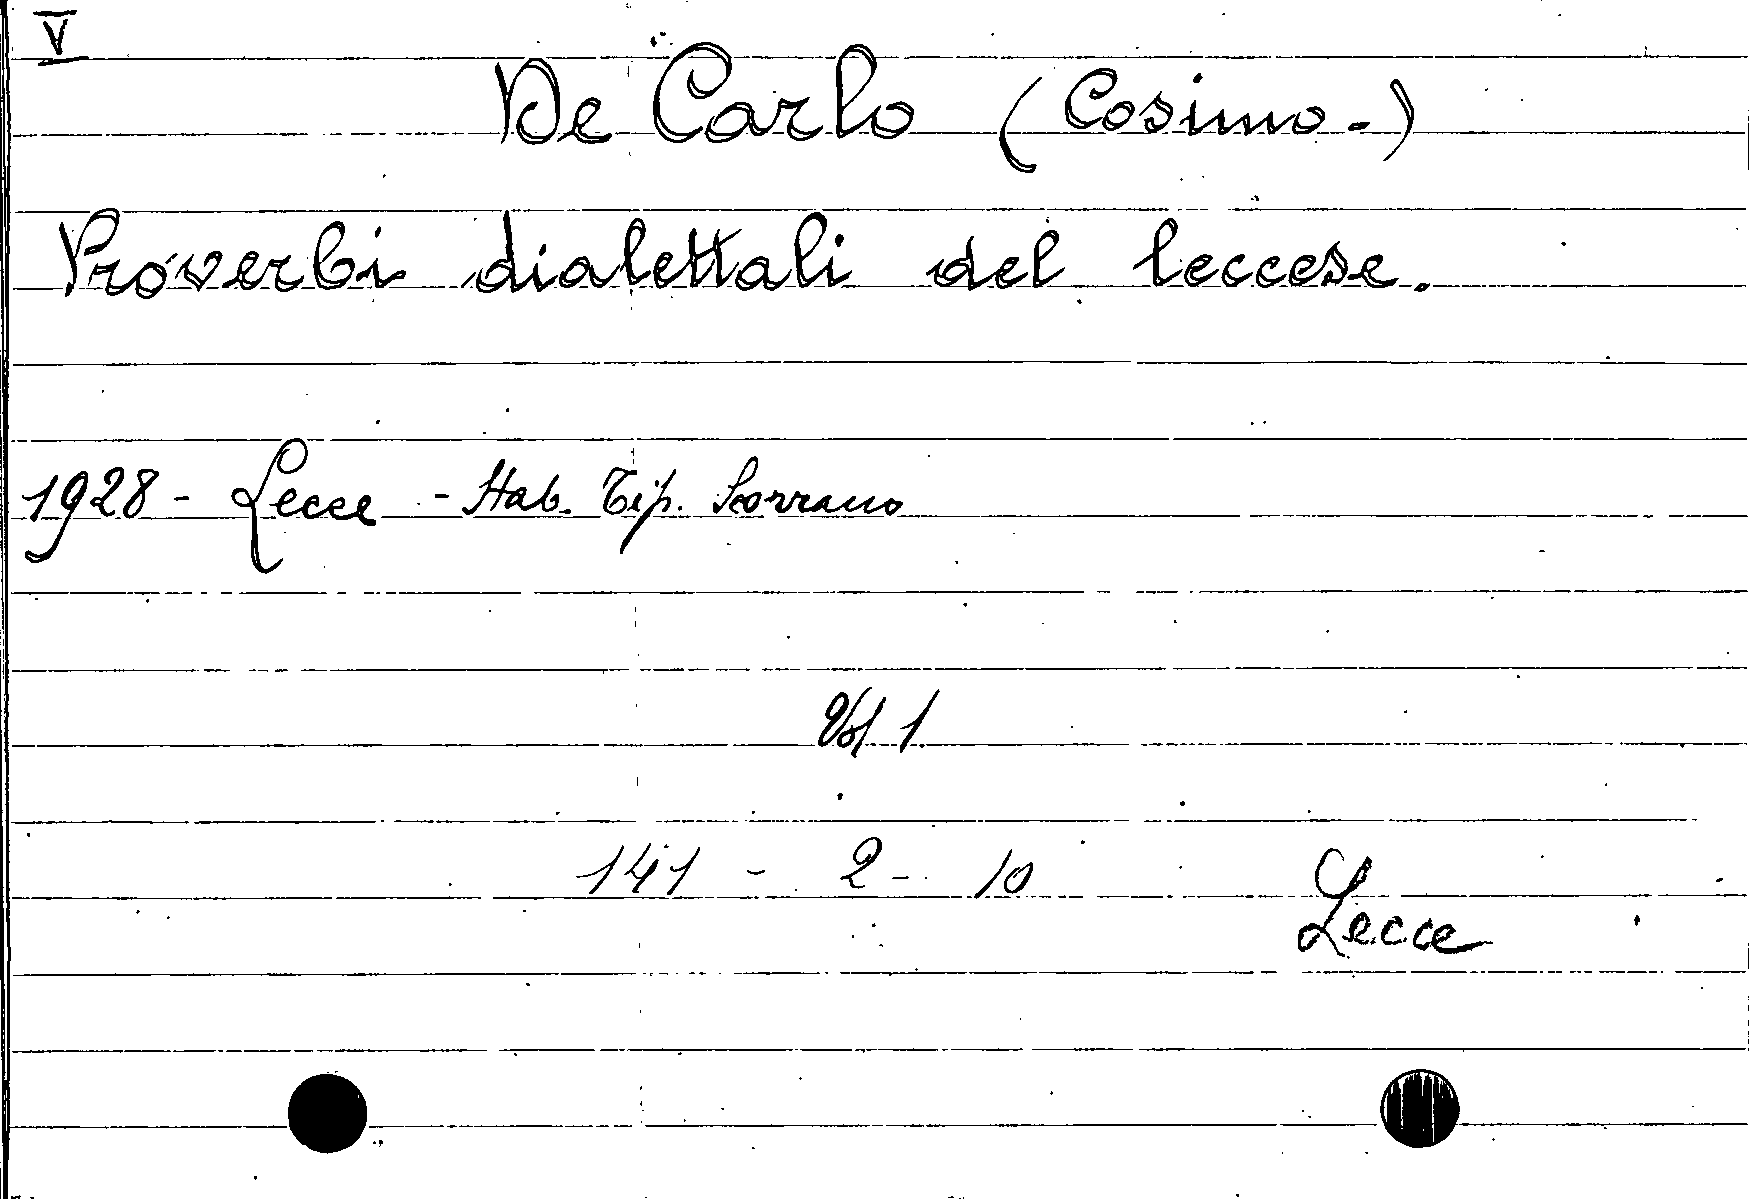 V
De Carlo (Cosimo-)
Proverbi dialettali del leccese.
1928 - Lecce - Stab. Tip. Scorrano
Vol 1
141 - 2 - 10
Lecce